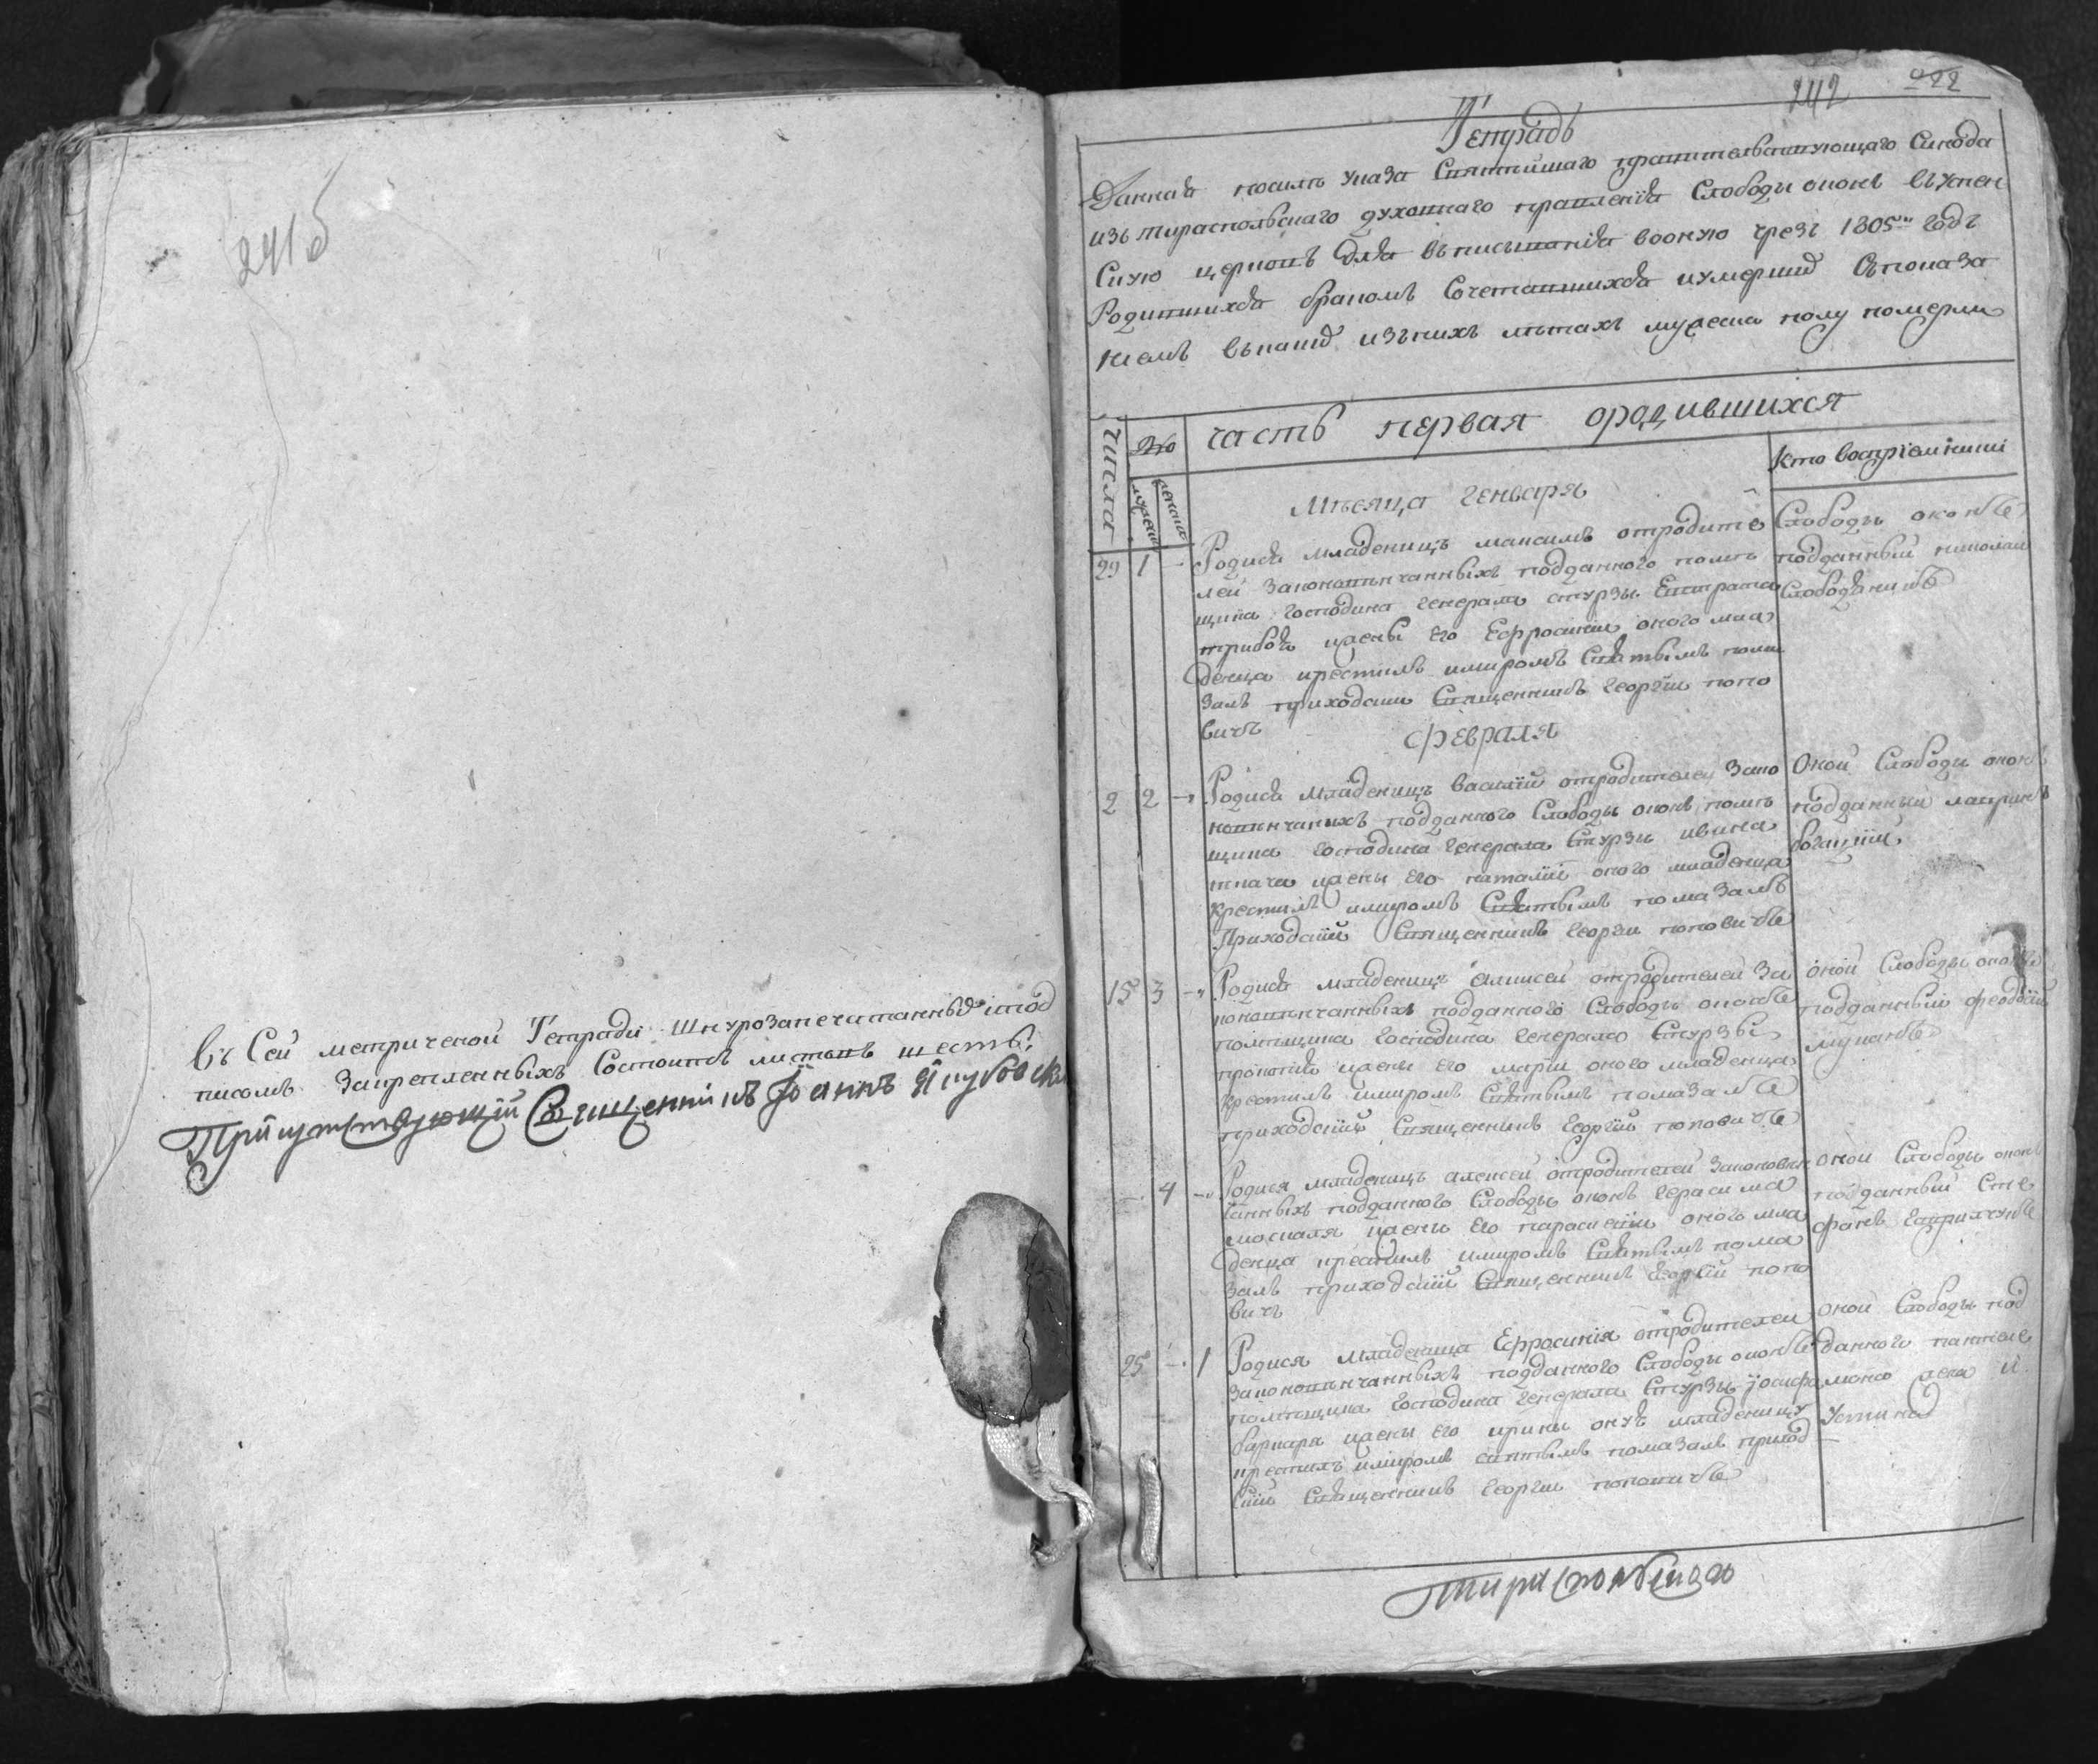 241б
Въ Сей метрической Тетради шнурозапечатанныхъ и под
писомъ Закрепленныхъ Состоитъ листовъ шесть.
Присутствующій Священникъ Іоаннъ Якубовскі
242 422
Тетрадь
Данная посилъ указа Святѣйшаго правительствующаго Синода
изъ тираспольскаго духовнаго правленія Слободы оконъ въ успен
скую церковъ для въписыванія воокую чрезъ 1805й годъ
Родившихся бракомъ Сочетавшихся и умерших Съ показа
ниемъ въкаких изъ нихъ лѣтахъ мужеска полу померли
Числа
№
мужеск
женска
часть первая ородившихся
Кто воспріемники
Мѣсяца Генваря
29 1 - Родися младеницъ максимъ отродите
лей Законовѣнчанныхъ подданного помѣ
щика господина генерала стурзы Евстратиа
жены его Ефросинии оного мла
денца крестилъ имиромъ Святымъ пома
залъ приходскии Священникъ георгии попо
вичъ
Слободы оконъ
подданный николаи
Слободяникъ
февраля
2 2 - Родися младеницъ василій отродителеи Зако
новѣнчаныхъ подданного Слободы оконъ помѣ
щика господина генерала Стурзы ивана
ткача жены его наталіи оного младенца
крестилъ имиромъ Святымъ помазалъ
Приходскій Священникъ георгии поповичъ
Оной Слободы оконъ
подданный лавринъ
15 3 - Родися младеницъ аликсеи отродителей За
коновѣнчанныхъ подданного Слободы оконъ
помѣщика господина генерала Стурзы
жены его марии оного младенца
крестилъ имиромъ Святымъ помазалъ
приходскій Священникъ георгій поповичъ
оной Слободы оконъ
подданный феодосій
4 - Родися младеницъ алексеи отродителей Законовѣн
чанныхъ подданного Слободы оконъ герасима
москаля жены его параскевіи оного мла
денца крестилъ имиромъ Святымъ пома
залъ приходскій Священникъ георгій попо
вичъ
оной Слободы оконъ
подданный Сте
фанъ
25 - 1 Родися младеница Ефросинія отродителеи
Законовѣнчанныхъ подданного Слободы оконъ
помѣщика господина генерала Стурзы іосифа
жены его ирины онуъ младеницу
крестилъ имиромъ святымъ помазалъ приход
скій Священникъ георгии поповичъ
оной Слободы под
данного пантеле
мона жена и
Устина
тираспольскаго